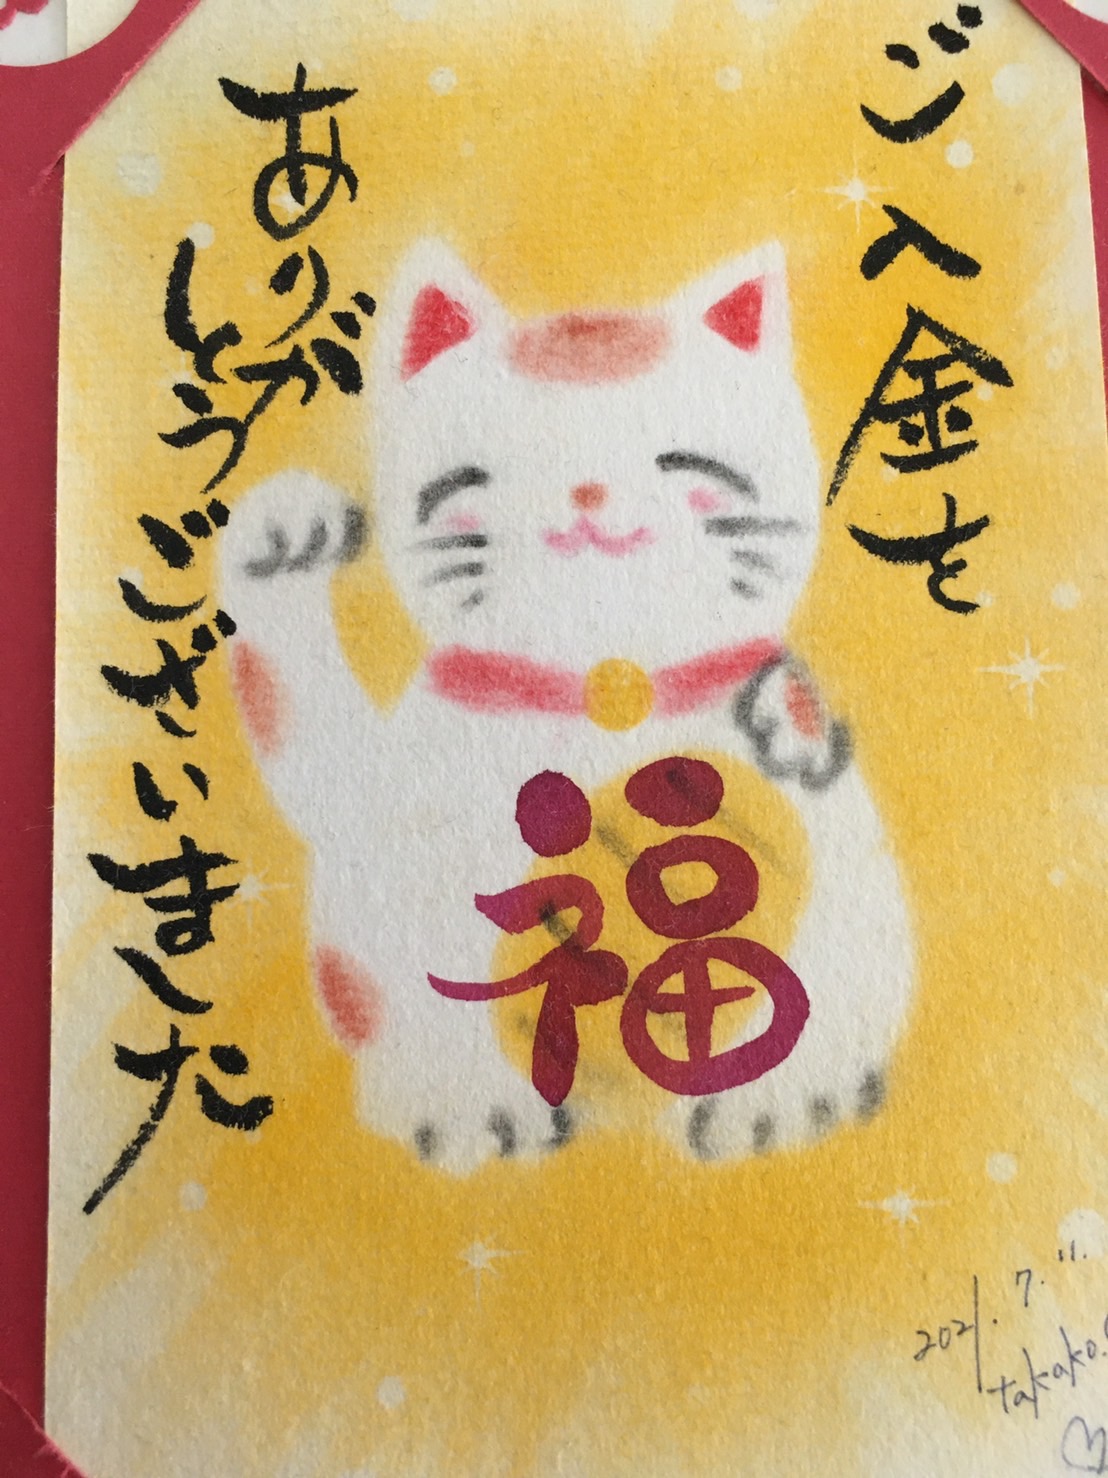 ご入金を
ありが
とうございました
福
2021.7.11.
takako.